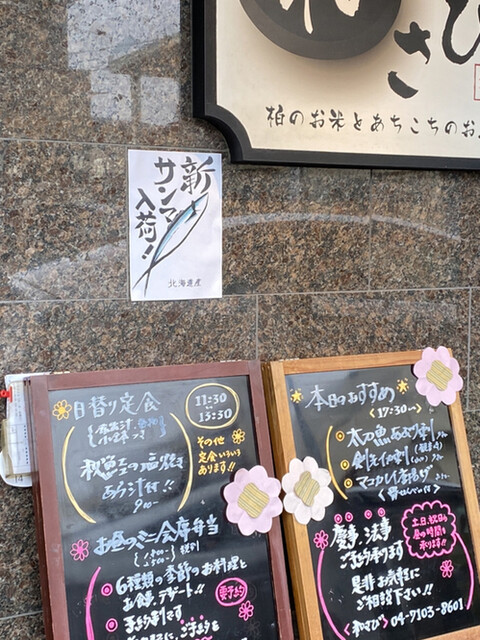 和さび
柏のお米とあちこちのお
新
サンマ
入荷!
北海道産
日替り定食
11:30
15:30
その他
定食いろいろ
あります!!
あら汁付!!
900-
お昼のミニ会席弁当
税別
6種類の季節のお料理と
お食事、デザート!!
要予約
予約制です
本日のおすすめ
<17:30〜>
太刀魚
マコカレイ唐揚げ
慶事、法事
ご予約承ります
是非お気軽に
ご相談下さい!!
土日、祝日も
昼の時間も
承ります!!
<和さび> 04-7103-8601